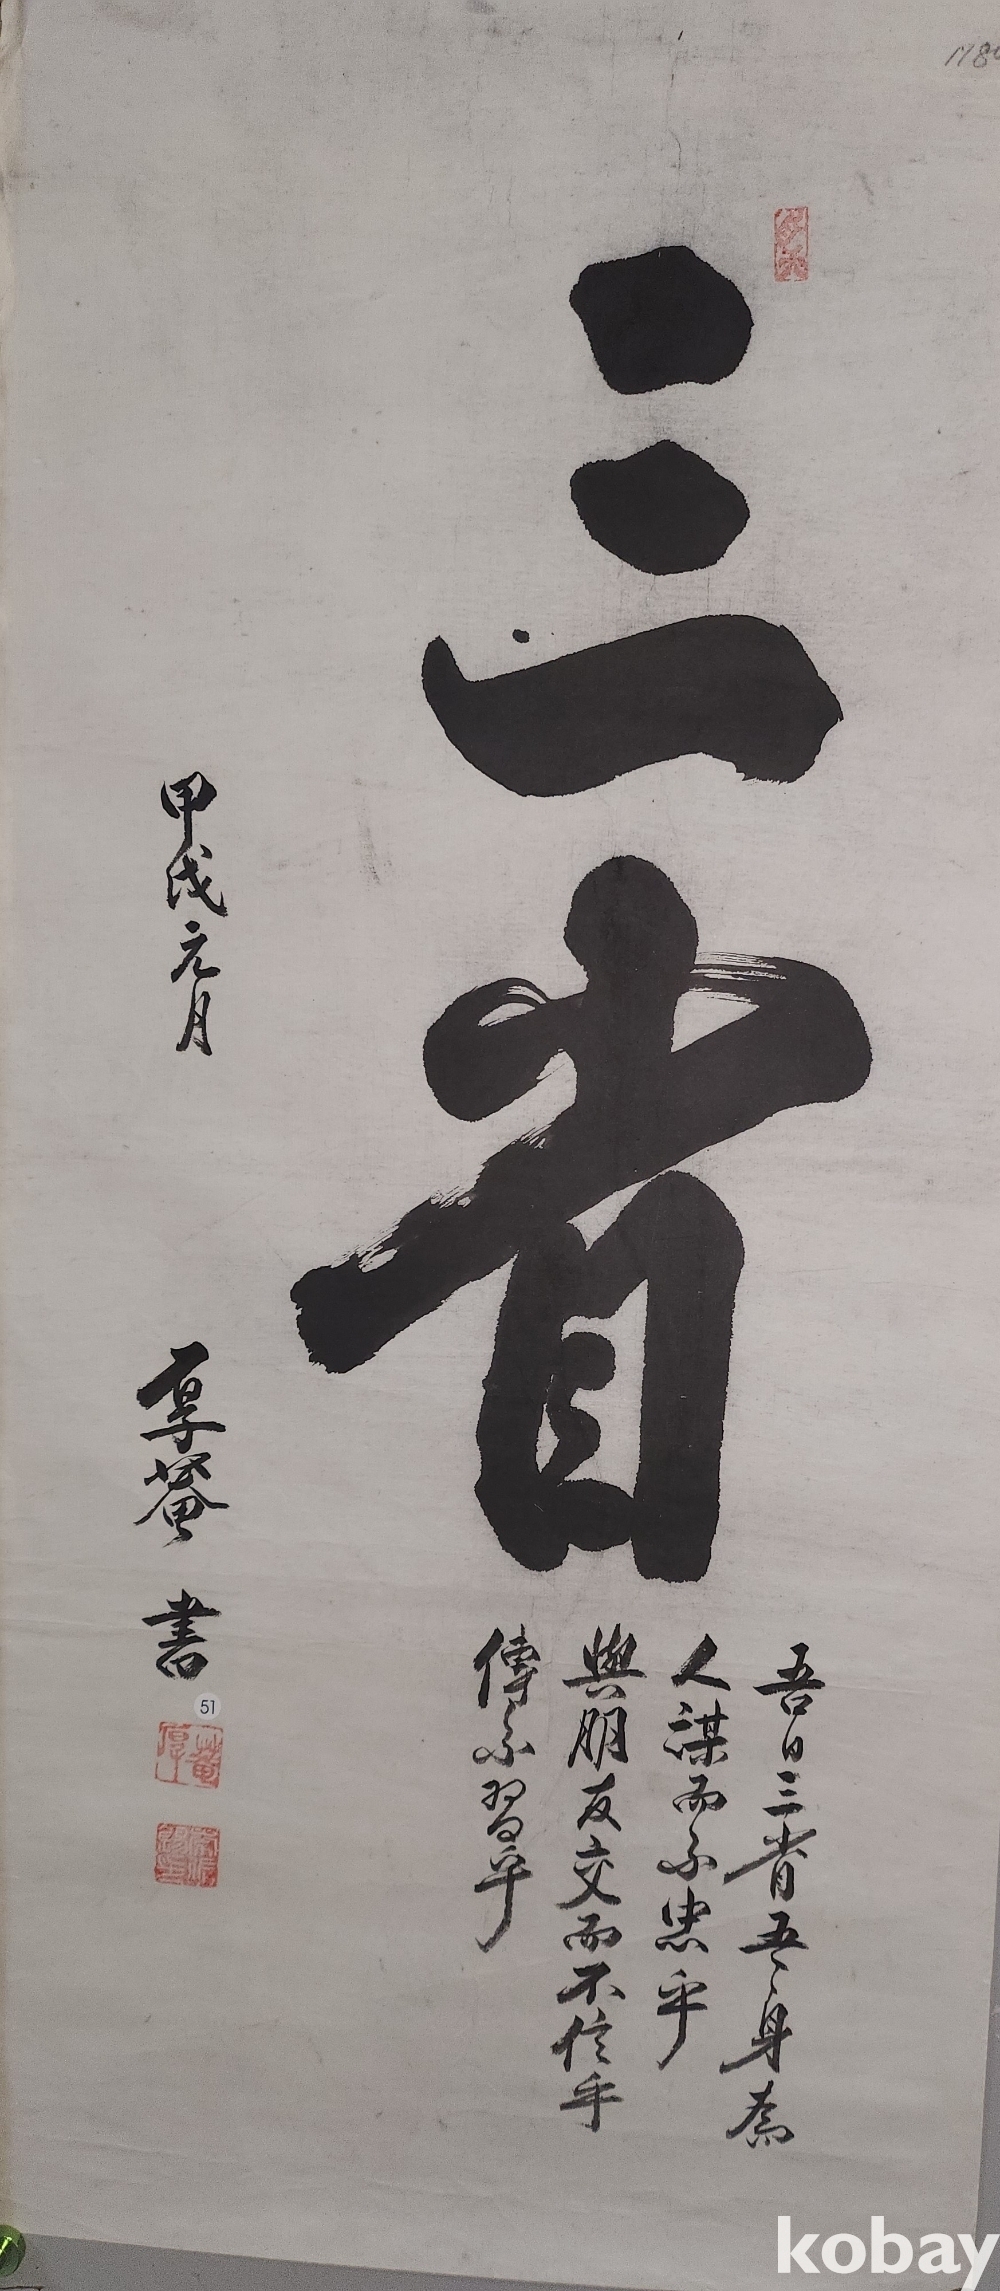 三省
吾日三省吾身爲
人謀而不忠乎
與朋友交而不信乎
傳不習乎
甲戌元月
厚菴 書
51
厚菴
kobay